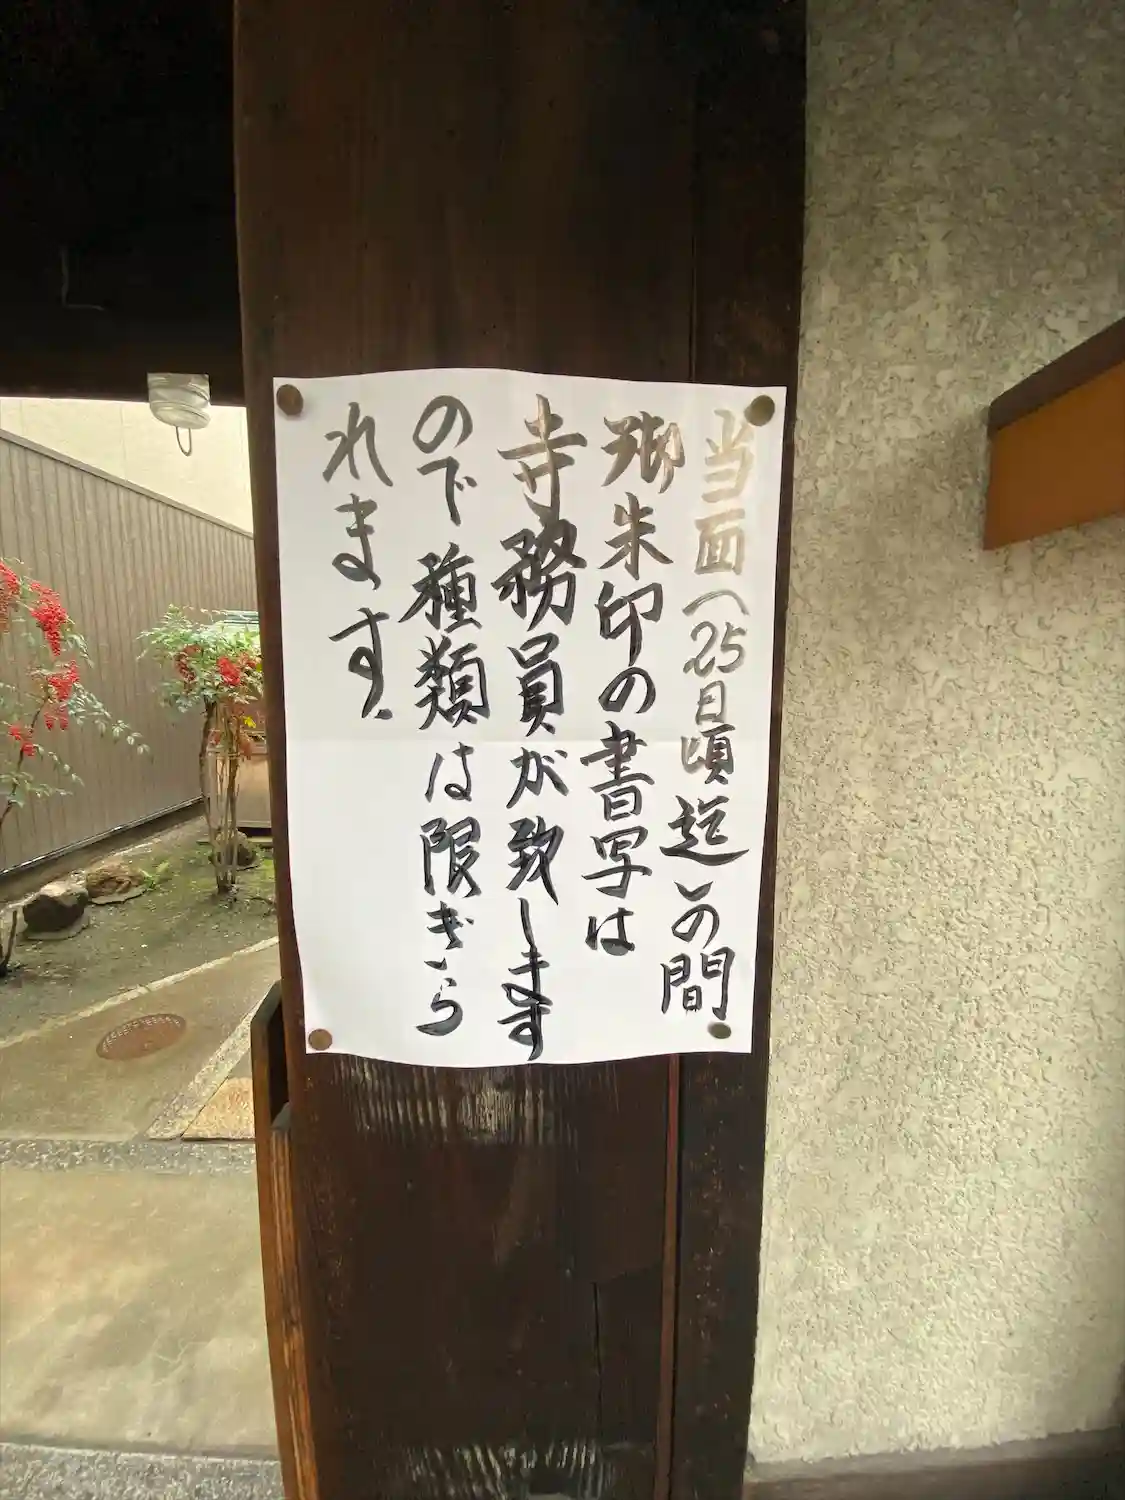 当面(25日頃迄)の間
御朱印の書写は
寺務員が致します
ので種類は限ぎら
れます.